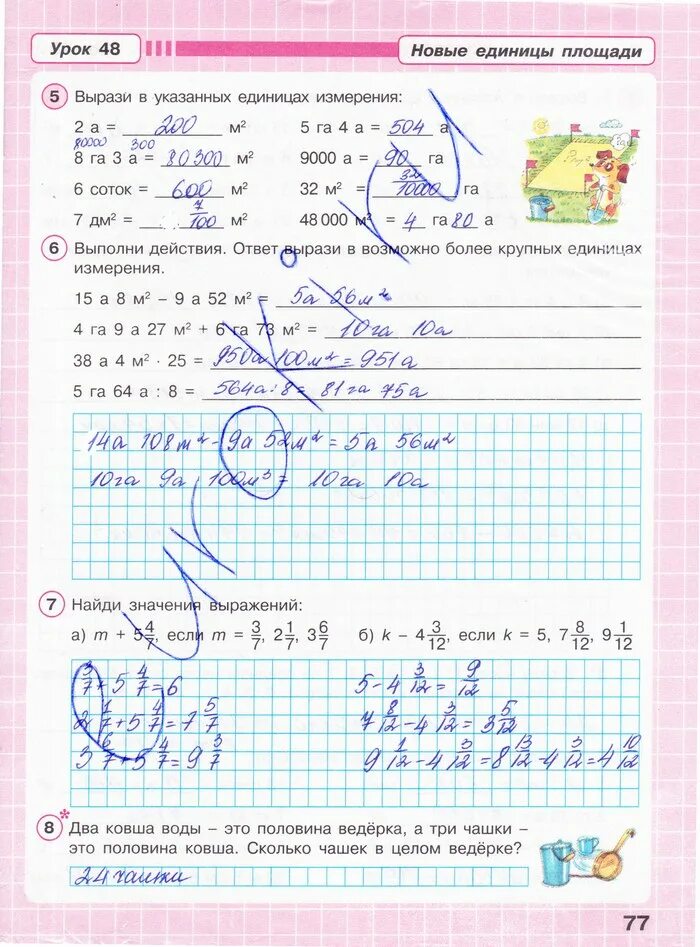 Урок 48
Новые единицы площади
5 Вырази в указанных единицах измерения:
2 а = 200 м² 5 га 4 а = 504 а
80000 300
8 га 3 а = 80300 м² 9000 а = 90 га
6 соток = 600 м² 32 м² = 32/10000 га
7 дм² = 7/100 м² 48 000 м² = 4 га 80 а
6 Выполни действия. Ответ вырази в возможно более крупных единицах
измерения.
15 а 8 м² – 9 а 52 м² = 5а 56м²
4 га 9 а 27 м² + 6 га 73 м² = 10га 10а
38 а 4 м² · 25 = 950а 100м² = 951а
5 га 64 а : 8 = 564а:8= 81га 75а
14а 108м² - 9а 52м² = 5а 56м²
10га 9а 100м³ = 10га 10а
7 Найди значения выражений:
а) m + 5 4/7, если m = 3/7, 2 1/7, 3 6/7 б) k – 4 3/12, если k = 5, 7 8/12, 9 1/12
3/7 + 5 4/7 = 6 5 - 4 3/12 = 9/12
2 1/7 + 5 4/7 = 7 5/7 7 8/12 - 4 3/12 = 3 5/12
3 6/7 + 5 4/7 = 9 3/7 9 1/12 - 4 3/12 = 8 13/12 - 4 3/12 = 4 10/12
8* Два ковша воды – это половина ведёрка, а три чашки –
это половина ковша. Сколько чашек в целом ведёрке?
24 чашки
77